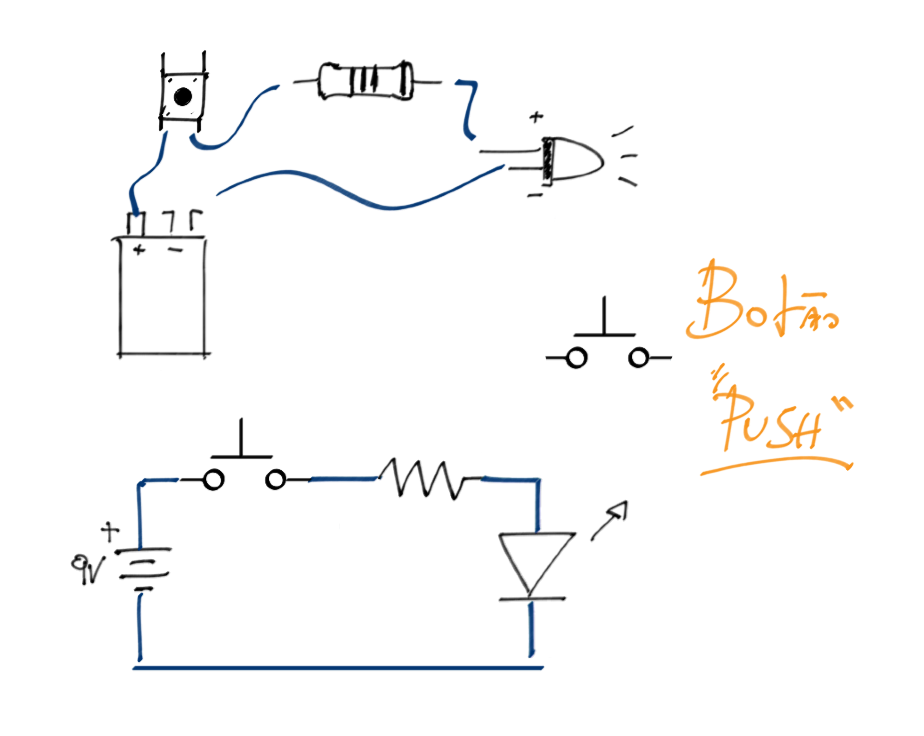 +
-
+ -
Botão
"PUSH"
+
9V